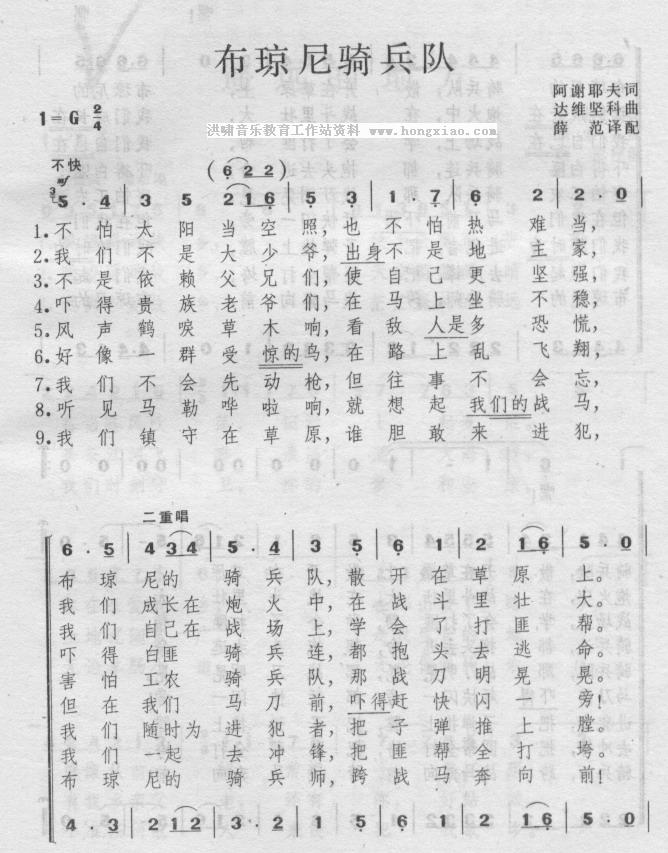 布琼尼骑兵队
阿谢耶夫词
达维坚科曲
薛范译配
洪啸音乐教育工作站资料 www.hongxiao.com
1=G 2/4
不快
mf
(6 2 2)
5 · 4 | 3 5 | 2 1 6 | 5 , 3 | 1 · 7 | 6 2 | 2 · 0 |
1.不怕太阳当空照,也不怕热难当,
2.我们不是大少爷,出身不是地主家,
3.不是依赖父兄们,使自己更坚强,
4.吓得贵族老爷们,在马上坐不稳,
5.风声鹤唳草木响,看敌人是多恐慌,
6.好像群受惊的鸟,在路上乱飞翔,
7.我们不会先动枪,但往事不会忘,
8.听见马勒哗啦响,就想起我们的战马,
9.我们镇守在草原,谁胆敢来进犯,
二重唱
6 · 5 | 4 3 4 | 5 · 4 | 3 , 5 | 6 · 1 | 2 1 6 | 5 · 0
布琼尼的骑兵队,散开在草原上。
我们成长在炮火中,在战斗里壮大。
我们自己在战场上,学会了打匪帮。
吓得白匪骑兵连,都抱头去逃命。
工农 那战刀明晃晃。
但在我们马刀前,吓得赶快闪旁!
我们随时为进犯者,把子弹推上膛。
我们一起去冲锋,把匪帮全打垮!
布琼尼的骑兵师,跨战马奔向前!
4 · 3 | 2 1 2 | 3 · 2 | 1 , 5 | 6 · 5 | 4 3 2 | 5 · 0